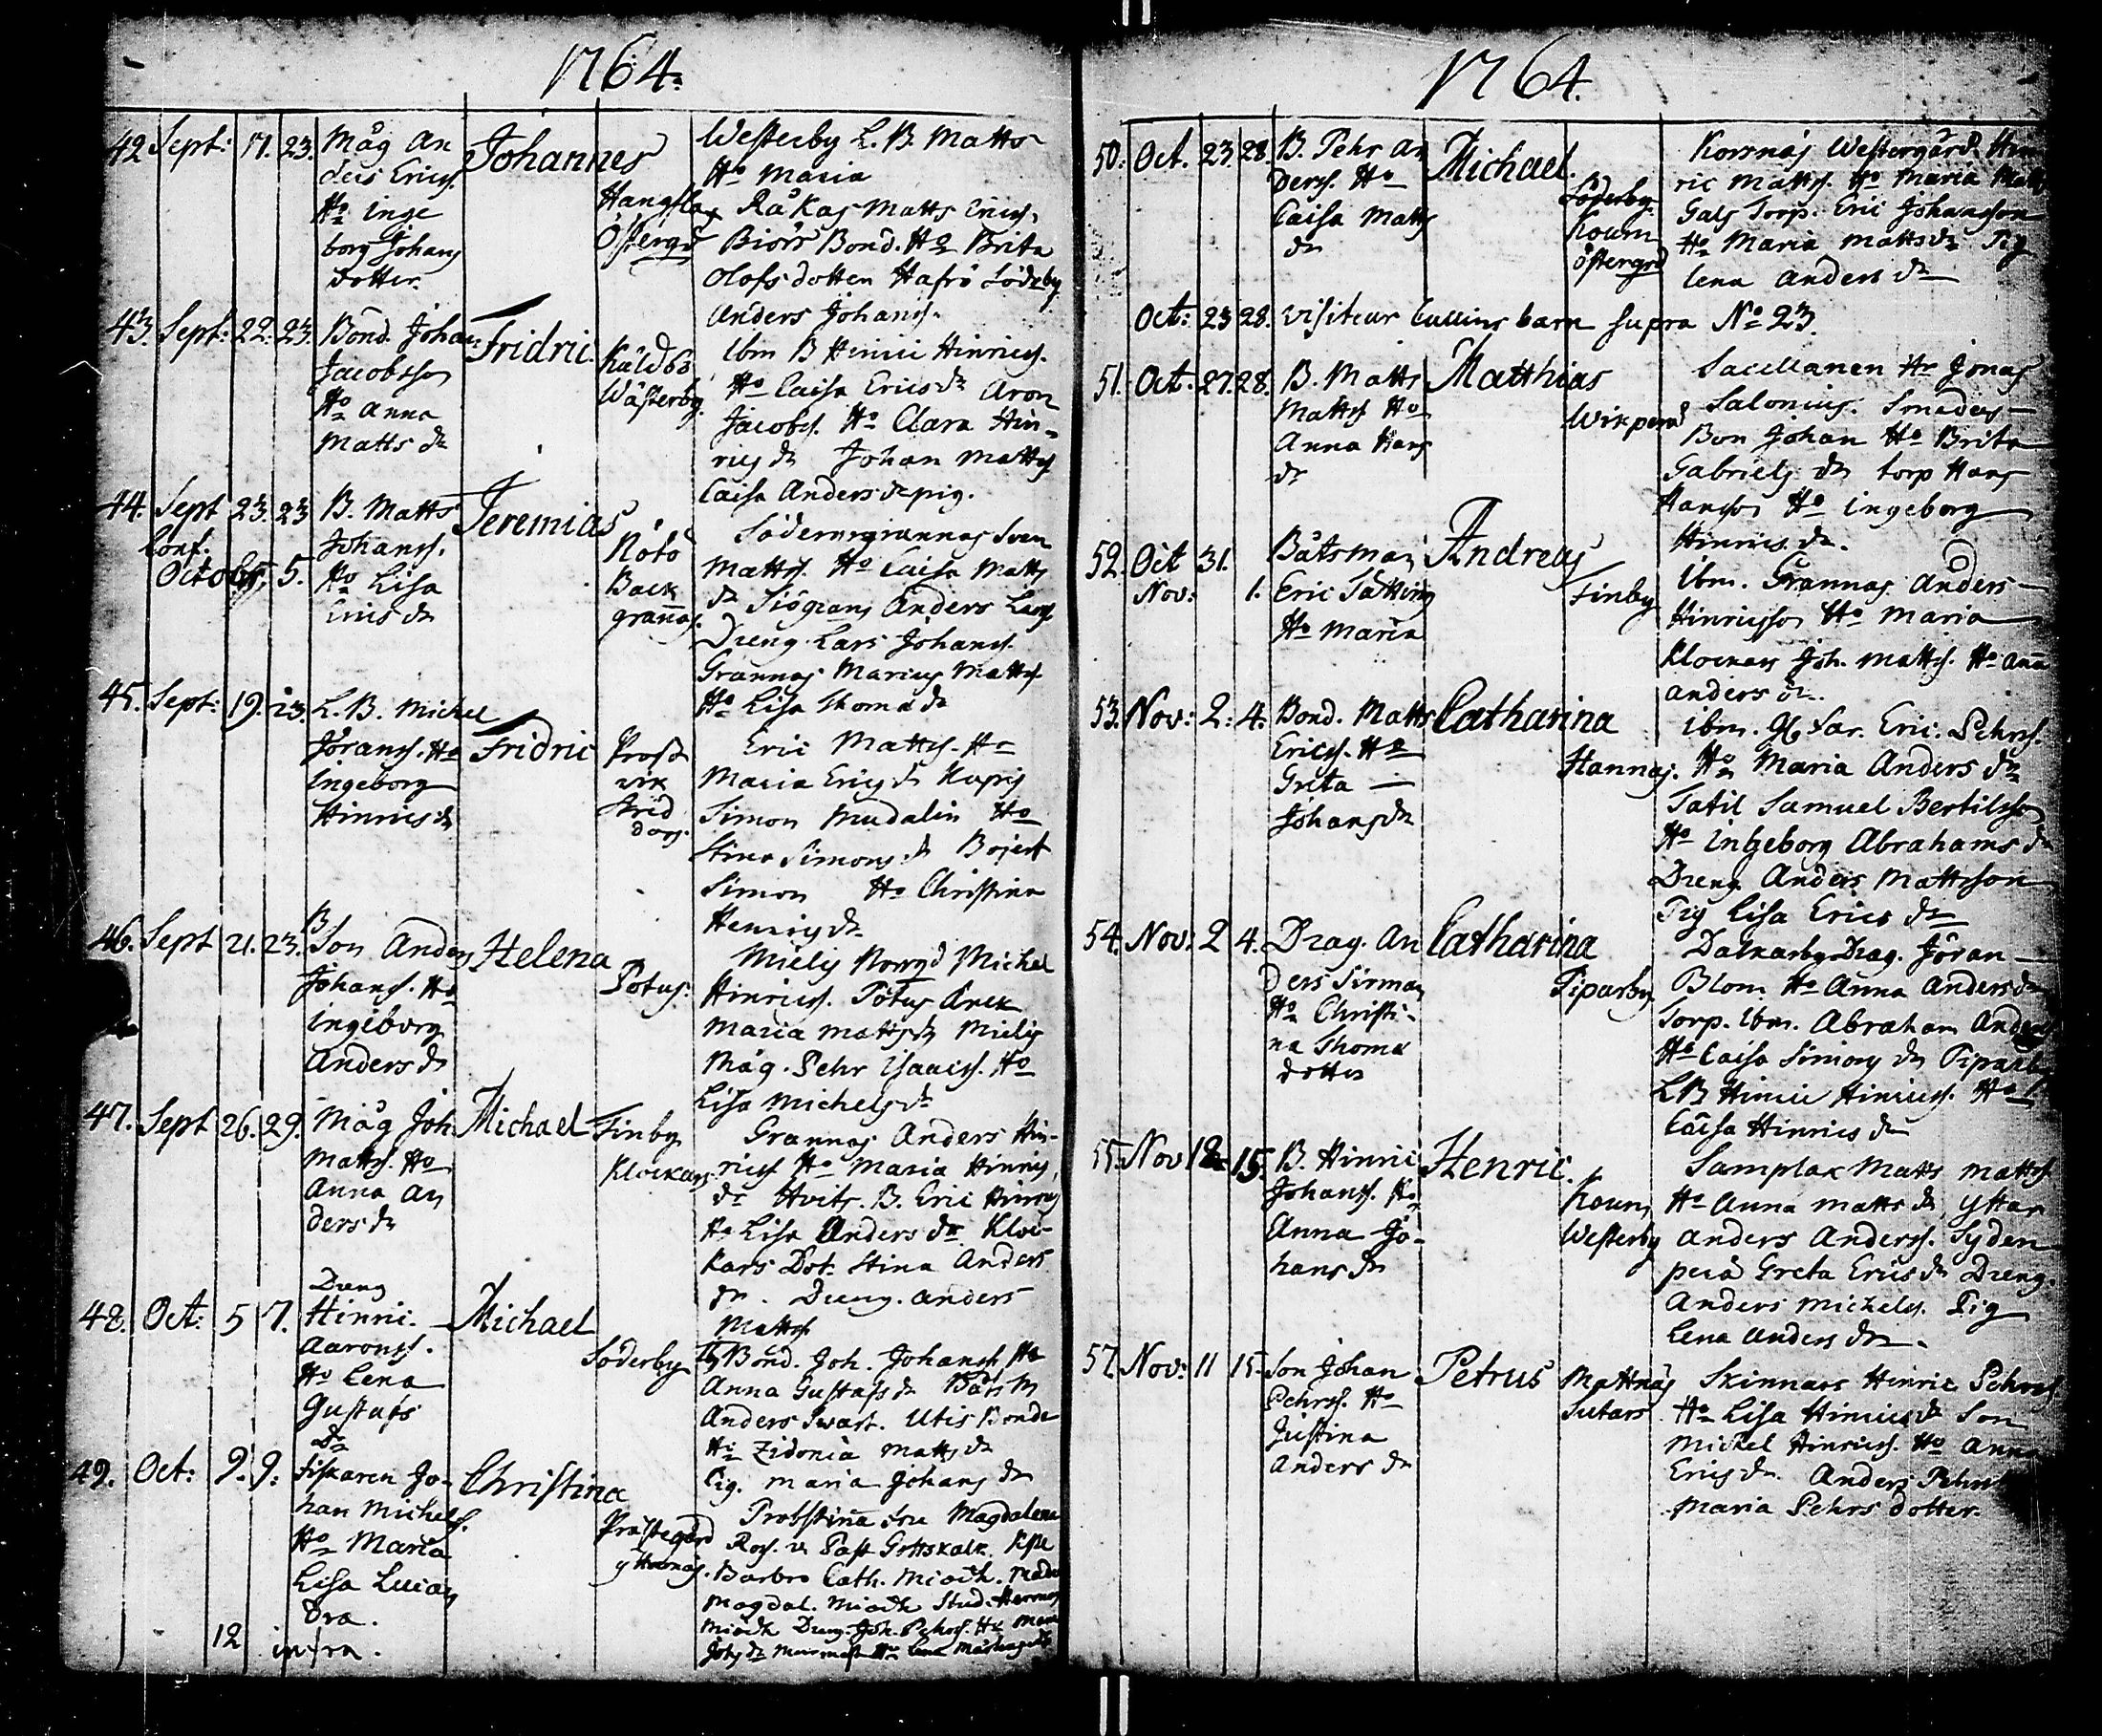 1764.
42. Sept: 17. 23. Måg An
ders Ericss.
Ho Inge
borg Johans
dotter.
Johannes
Hangslax
Östergd
Westerby L. B. Matts
Ho Maria
Råkas Matts Ericss.
Biörs Bond. Ho Brita
Olofsdotter Hafrö Söderby
Anders Johanss.
43. Sept: 22. 23. Bond. Johan
Jacobsson
Ho Anna
Matts dr
Fridric.
Kåldö
Wästerby.
Ibm B Hinric Hinricss.
Ho Caisa Erics dr Aron
Jacobs. Ho Clara Hin-
rics dr Johan Mattss
Caisa Anders dr pig.
44. Sept 23. 23 B. Matts
Conf.
October 5. Johanss.
Ho Lisa
Erics dr
Jeremias
Nötö
Back
grannas.
Södergrannas Sven
Mattss. Ho Caisa Matts
dr Siögrans Anders Larss.
Dreng Lars Johanss.
Grannas Marcus Mattss
Ho Lisa Thoma dr
45. Sept: 19. 23. L. B. Michel
Jöranss. Ho
Ingeborg
Hinrics dr
Fridric
Prost
vik
Eric Mattss. Ho
Maria Erics dr Kupis
Simon Ho
Stina Simons dr
Simon Ho Christina
Henrics dr
46. Sept 21. 23. B
Son Anders
Johanss. Ho
Ingeborg
Anders dr
Helena
Pötus.
Mielis Norrgd Michel
Hinricss. Pötus Enek
Maria Matts dr Mielis
Måg. Pehr Isaacss. Ho
Lisa Michels dr
47. Sept 26. 29. Måg Joh
Mattss. Ho
Anna An
ders dr
Michael
Finby
Klockars.
Grannas Anders Hin-
ricss Ho Maria Hinrics
dr Hvits. B. Eric Hinrics
Ho Lisa Anders dr. Kloc-
kars Dot. Stina Anders
dr. Dreng. Anders
Mattss.
48. Oct: 5 7. Dreng
Hinric.
Aaronss.
Ho Lena
Gustafs
Dr
Michael
Söderby
Bond. Joh. Johanss Ho
Anna Gustafs dr Båts M
Anders Svart. Utis Bonde
Ho Zidonia Matts dr
Pig. Maria Johans dr
49. Oct: 9. 9. Fiskaren Jo-
han Michelss.
Ho Maria
Lisa Lucan
dra.
Christina
Prästegård
Ytternäs.
Probstinna Fru Magdalena
Ross. v Past Gottskalk.
Barbro Cath. Miödh.
Magdal. Miödh Stud. Herman
Miödh Dreng. Joh. Pehrss. Ho
12 infra.
1764.
50. Oct. 23 28. B. Pehr An
derss. Ho
Caisa Matts
dr
Michael.
Söderby
Kourn
Östergrd
Korsnäs Westergård Hin
ric Mattss. Ho Maria Matts
Gals Torp. Eric Johansson
Ho Maria Matts dr Pig
Lena Anders dr
Oct: 23 28. Visiteur Cullins barn supra No 23.
51. Oct: 27. 28. B. Matts
Mattss Ho
Anna Hans
dr
Matthias
Wikperä
Sacellanen Hr Jonas
Salonius. Smedens
Bon Johan Ho Brita
Gabriels dr Torp Hans
Hansson Ho Ingeborg
Hinrics dr.
52. Oct 31.
Nov: 1. Båtsman
Eric Tätting
Ho Maria
Andreas
Finby
Ibm. Grannas Anders
Hinricsson Ho Maria
Klockars Joh. Mattss. Ho Anna
Anders dr.
53. Nov: 2. 4. Bond. Matts
Ericss. Ho
Greta
Johans dr
Catharina
Hannas.
Ibm. Eric. Pehrss.
Ho Maria Anders dr
Tatil Samuel Bertilsson
Ho Ingeborg Abrahams dr
Dreng Anders Mattsson
Pig Lisa Erics dr
54. Nov: 2 4. Drag. An
ders Firman
Ho Christi-
na Thomæ
dotter
Catharina
Piparby
Dalkarby Drag. Jöran
Blom Ho Anna Anders dr
Torp. Ibm. Abraham Anderss
Ho Caisa Simons dr Piparby
L B Hinric Hinricss. Ho
Caisa Hinrics dr
55. Nov 12 15. B. Hinric
Johanss. Ho
Anna Jo-
hans dr
Henric.
Kourn
Westerby
Samplax Matts Mattss
Ho Anna Matts dr, Yttar
Anders Anderss. Syden
perä Greta Erics dr Dreng.
Anders Michelss. Pig
Lena Anders dr.
57 Nov: 11 15. Son Johan
Pehrss. Ho
Justina
Anders dr
Petrus
Mattnäs
Sutars
Skinnars Hinric Pehrss
Ho Lisa Hinrics dr Son
Michel Hinricss. Ho Anna
Erics dr. Anders Pehrss
Maria Pehrs dotter.